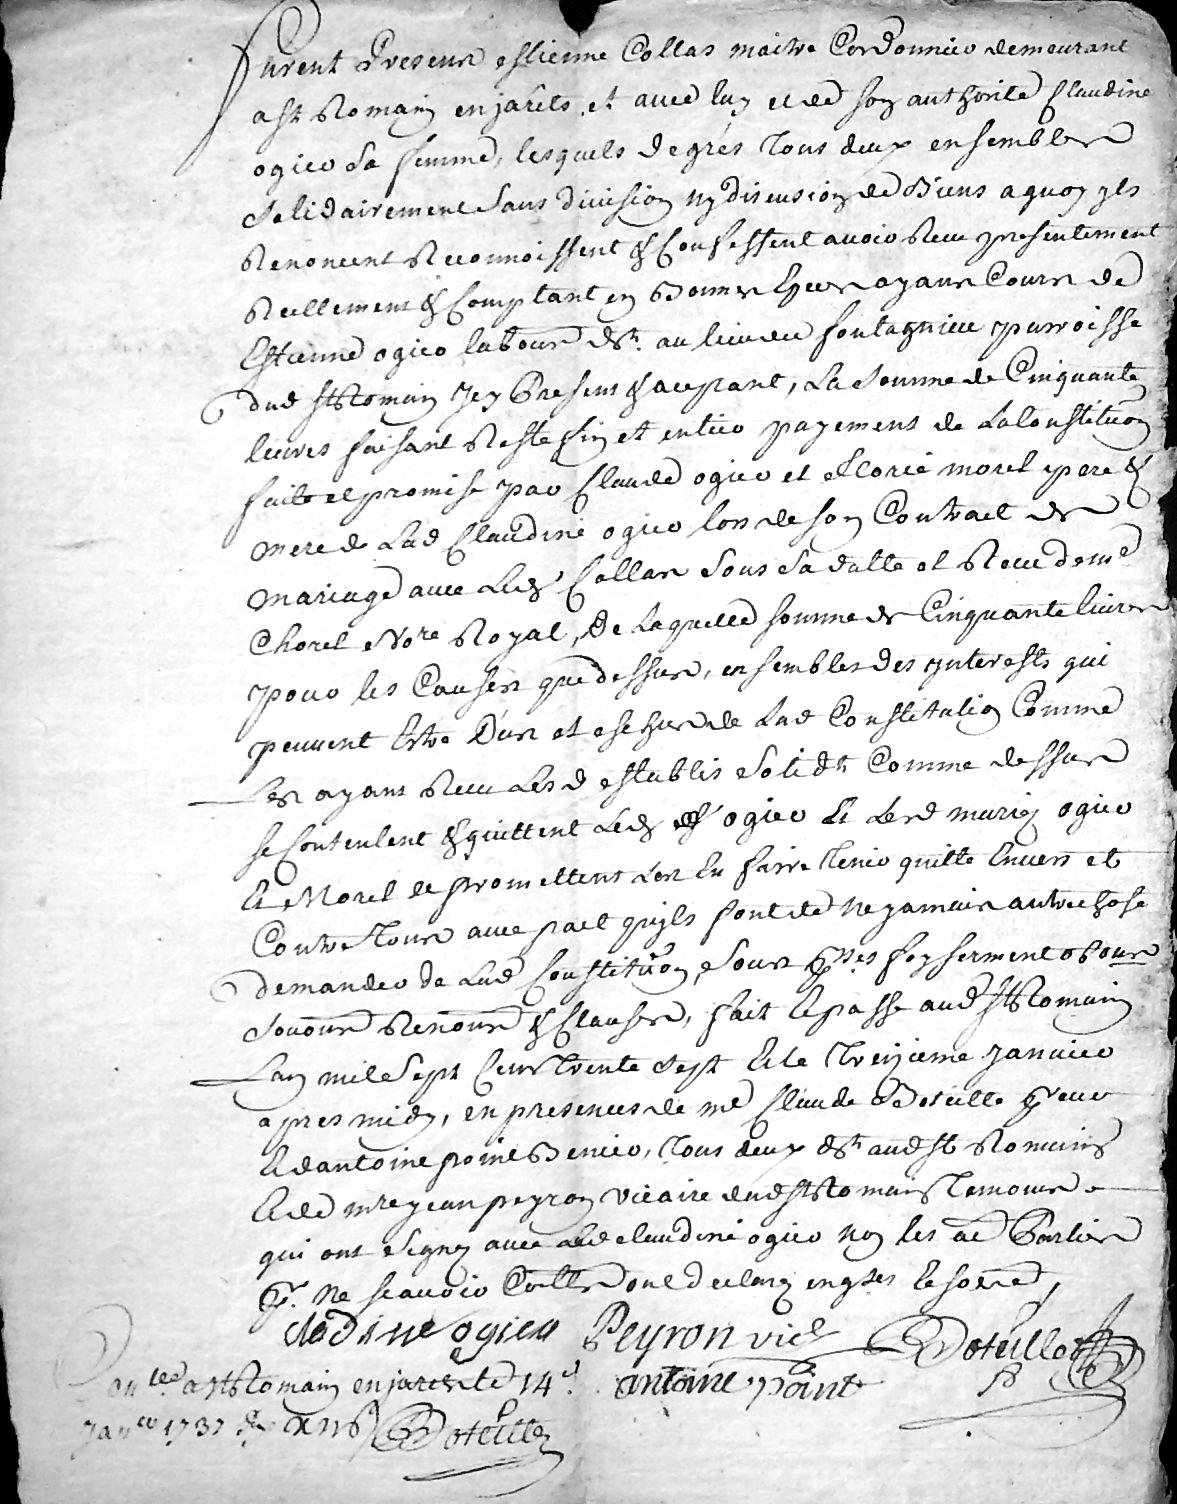 Furent Presens estienne Collas maitre Cordonnier demeurant
a St Romain en jarets, et avec luy et de son authorité Claudine
ogier Sa femme, lesquels de grés tous deux ensembles
Solidairement Sans division ny discusion de Biens a quoy yls
Renoncent Reconnoissent & Confessent avoir Receu presentement
Reellement & Comptant en Bonnes Especes ayans Cours de
Estienne ogier laboureur dt. au lieu de fontagnieu parroisse
dud St Romain Jcy Present & aceptant, La Somme de Cinquante
livres faisant Reste fin et entier payement de La Constitution
faite et promise par Claude ogier et Florie morel pere &
mere de Lad Claudine ogier lors de son Contract de
mariage avec Led Collas Sous Sa datte et Receu de me
Chorel Nore Royal, De Laquelle somme de Cinquante livres
pour les Causes que dessus, ensembles des ynterests qui
peuvent Estre Dus et eschus de Lad Constitution Comme
Les ayans Receu Lesd establis Solidt Comme dessus
se Contentent & quittent Led ogier Et Lesd mariez ogier
Et Morel et promettent Les En faire Tenir quitte Envers et
Contre Tous avec pact quyls font de Ne jamais autre chose
demander de Lad Constitution, Sous foy serment obours
Soumons Renons & Clauses, fait Et passé aud St Romain
Lan mil Sept Cens Trente Sept Et le Treizieme Janvier
apres midy, en presences de me Claude Boteille
Et d antoine point Benier, Tous deux dt aud St Romain
Et de mre jean peyron vicaire dud St Romain Temoins
qui ont Signez avec lad claudine ogier non les au Parties
pr. Ne scavoir Collas ont declarez enquis Et sommé,
cladine ogier Peyron vic Boteille
antoine point
Conlle a St Romain en jarest le 14e
Janer 1737 Boteille